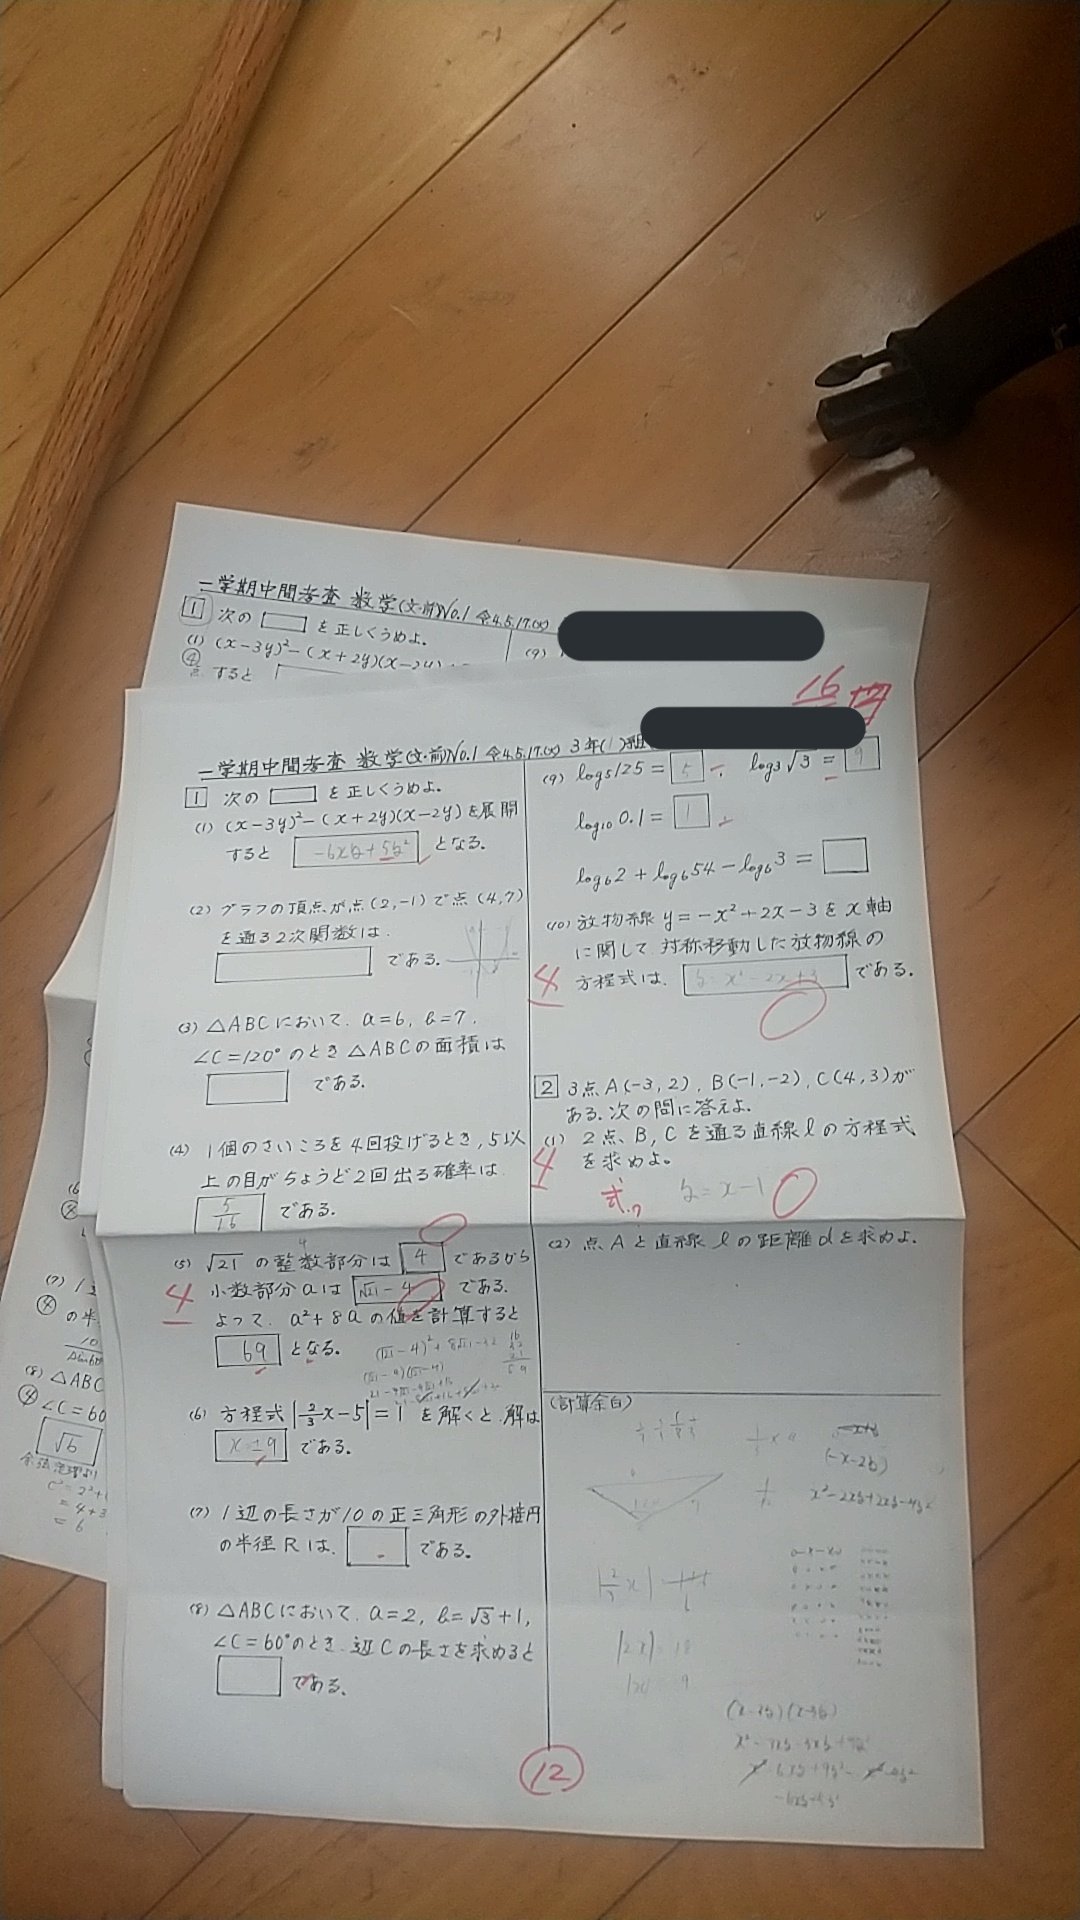 一学期中間考査 数学(文・前)No.1 令4.5.17.(火)
1 次の を正しくうめよ。
(1) (x-3y)²-(x+2y)(x-2y)
④ すると
(9)
16
一学期中間考査 数学(文・前)No.1 令4.5.17.(火) 3年(1)組
1 次の を正しくうめよ。
(1) (x-3y)²-(x+2y)(x-2y)を展開
すると -6xy+5y² となる。
(2) グラフの頂点が点(2,-1)で点(4,7)
を通る2次関数は
である。
(3) △ABCにおいて、a=6, b=7,
∠C=120°のとき△ABCの面積は
である。
(4) 1個のさいころを4回投げるとき,5以
上の目がちょうど2回出る確率は
5/16 である。
(5) √21 の整数部分は 4 であるから
4 小数部分aは √21-4 である。
よって、a²+8aの値を計算すると
69 となる。
(6) 方程式|2/3x-5|=1 を解くと、解は
x=±9 である。
(7) 1辺の長さが10の正三角形の外接円
の半径Rは、 である。
(8) △ABCにおいて、a=2, b=√3+1,
∠C=60°のとき、辺Cの長さを求めると
である。
(9) log₅125= 5 , log₃√3= 9
log₁₀0.1= 1
log₆2+log₆54-log₆3=
(10) 放物線y=-x²+2x-3をx軸
に関して対称移動した放物線の
4 方程式は、 y=x²-2x+3 である。
2 3点A(-3,2), B(-1,-2), C(4,3)が
ある。次の問に答えよ。
(1) 2点、B,Cを通る直線lの方程式
4 を求めよ。
式 y=x-1
(2) 点Aと直線lの距離dを求めよ。
(計算余白)
(-x-2y)
x²-2xy+2xy-4y²
(x-3y)(x-3y)
12
(7) 1辺
④ の半
10
(8) △ABC
④ ∠C=60
√6
余弦定理より
=4+3
=6